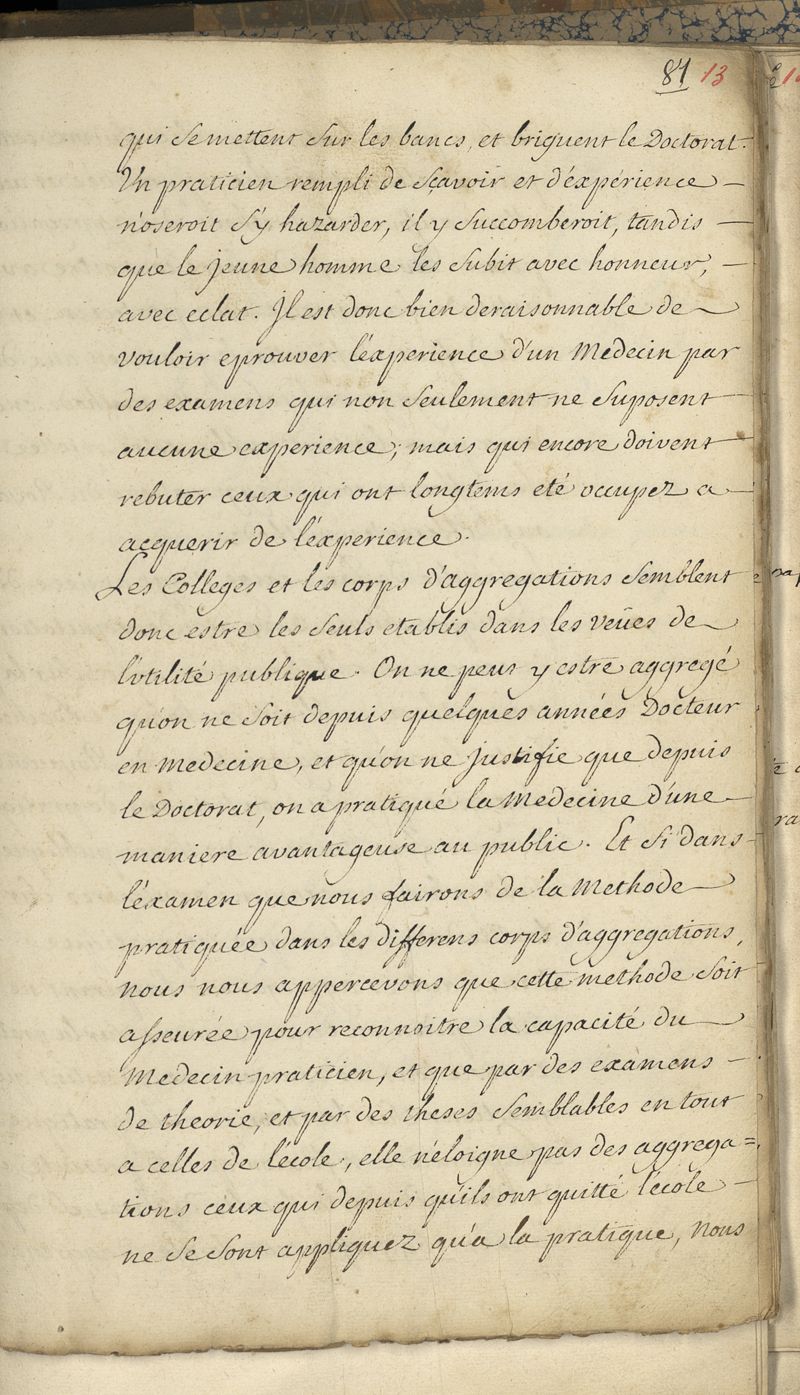 87 13
qui se mettent sur les bancs, et briguent le Doctorat.
Un praticien rempli de sçavoir et d'éxpérience
n'oseroit s'y hazarder, il y succomberoit, tandis
que le jeune homme les subit avec honneur,
avec eclat. Il est donc bien deraisonnable de
vouloir eprouver l'éxperience d'un Medecin par
des examens qui non seulement ne suposent
aucune experience; mais qui encore doivent
rebuter ceux qui ont longtems eté occupez a
acquerir de l'éxperience.
Les Colleges et les corps d'aggregations semblent
donc estre les seuls etablis dans les veües de
l'vtilité publique. On ne peut y estre aggregé
qu'on ne soit depuis quelques années Docteur
en Medecine, et qu'on ne justifie que depuis
le Doctorat, on a pratiqué la Medecine d'une
maniere avantageuse au public. Et si dans
l'éxamen que nous fairons de la Methode
pratiquée dans les differens corps d'aggregations,
nous nous appercevons que cette methode soit
asseurée pour reconnoitre la capacité du
Medecin praticien, et que par des examens
de theorie, et par des theses semblables en tout
a celles de l'école, elle n'eloigne pas des aggrega=
tions ceux qui depuis qu'ils ont quitté l'école
ne se sont appliquez qu'a la pratique, nous